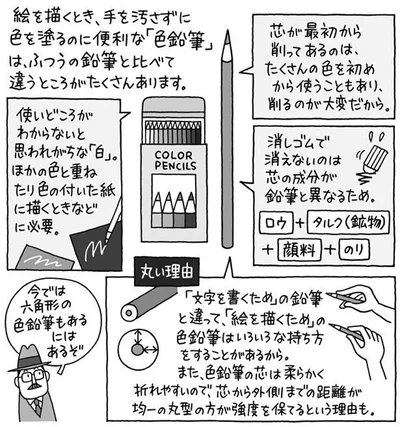 絵を描くとき、手を汚さずに
色を塗るのに便利な「色鉛筆」
は、ふつうの鉛筆と比べて
違うところがたくさんあります。
芯が最初から
削ってあるのは、
たくさんの色を初め
から使うこともあり、
削るのが大変だから。
使いどころが
わからないと
思われがちな「白」。
ほかの色と重ね
たり色の付いた紙
に描くときなど
に必要。
COLOR
PENCILS
消しゴムで
消えないのは
芯の成分が
鉛筆と異なるため。
ロウ+タルク(鉱物)
+顔料+のり
丸い理由
「文字を書くため」の鉛筆
と違って、「絵を描くため」の
色鉛筆はいろいろな持ち方
をすることがあるから。
また、色鉛筆の芯は柔らかく
折れやすいので、芯から外側までの距離が
均一の丸型の方が強度を保てるという理由も。
今では
六角形の
色鉛筆もある
には
あるぞ